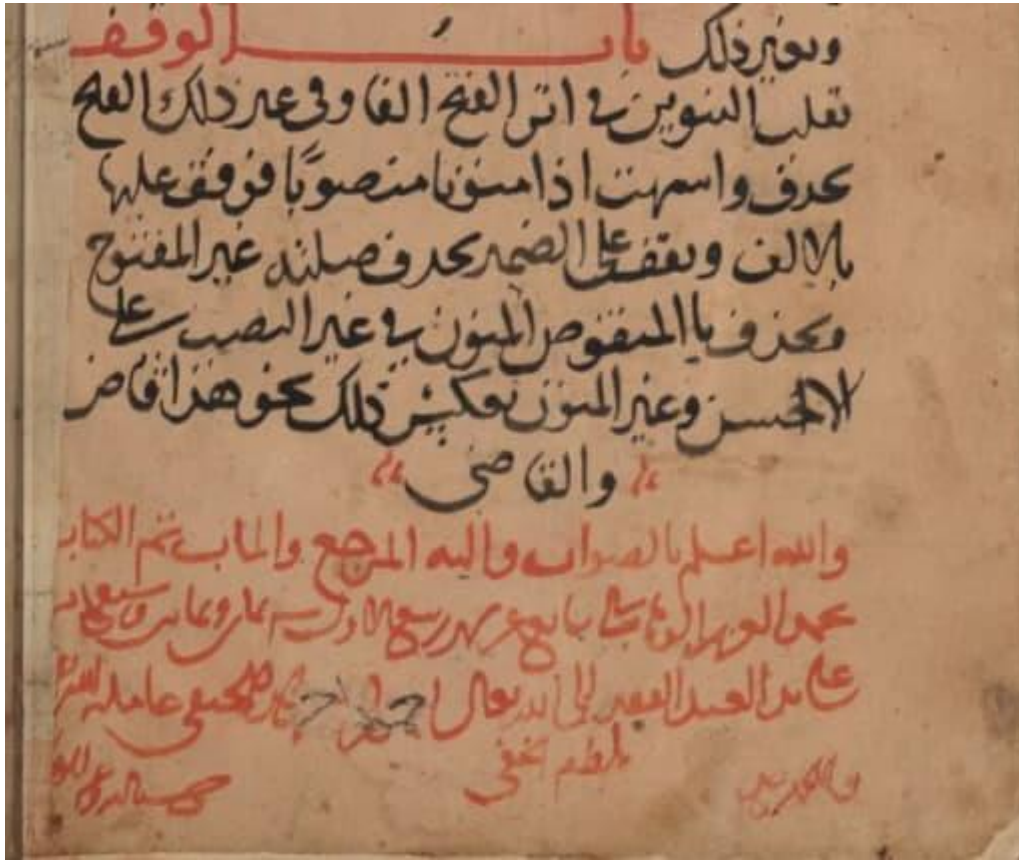 وبغير ذلك باب الوقف
تقلب التنوين في اثر الفتح الفا وفي غير ذلك الفتح
يحذف واسمهت اذا منونا منصوبا فوقف عليها
بالالف ويقف على الضمير بحذف صلته غير المفتوح
ويحذف يا المنقوص المنون في غير النصب على
الاحسن وغير المنون بعكس ذلك نحو هذا قاض
والقاضي
والله اعلم بالصواب واليه المرجع والماب تم الكتاب
ربيع الاول ثمان وثمانين
على يد العبد الفقير الى الله تعالى الحنفي عامله
بلطفه الخفي